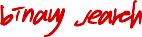 binary search